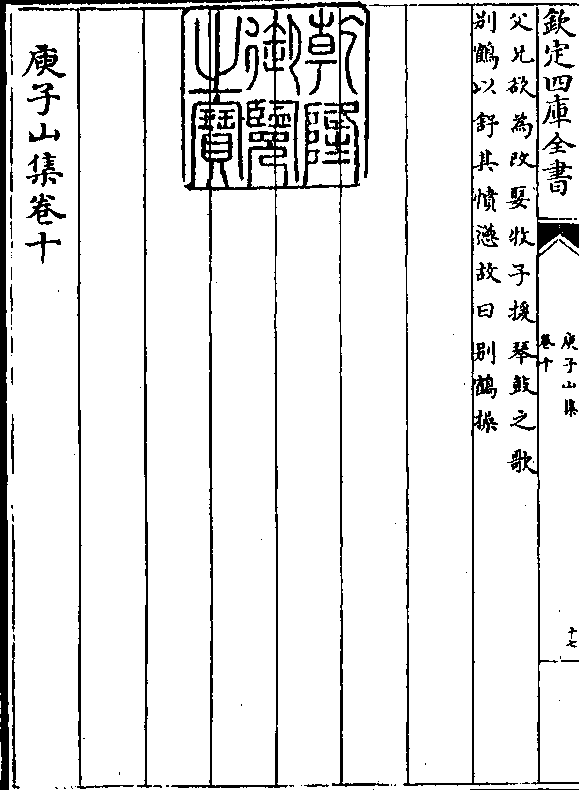 欽定四庫全書
庾子山集
卷十
十七
父兄欲為改娶牧子援琴鼓之歌
别鶴以舒其憤懣故曰别鶴操
乾隆御覽之寶
庾子山集卷十